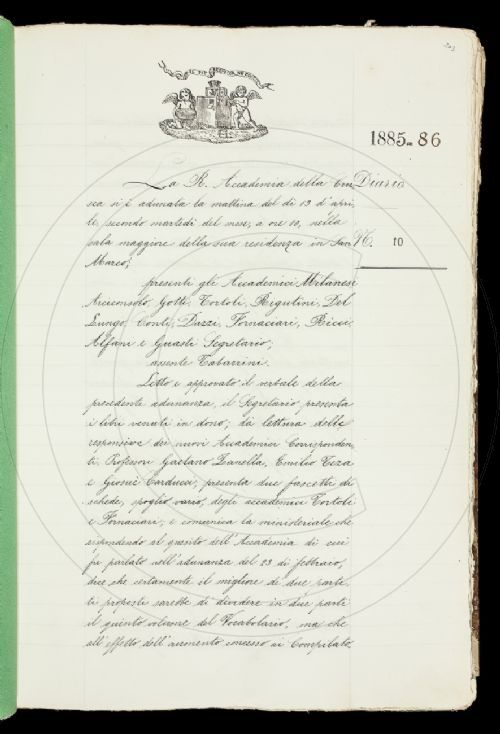 203
IL PIÙ BEL FIOR NE COGLIE
1885-86
La R. Accademia della Cru
Diario
sca si è adunata la mattina del dì 13 d'apri
le, secondo martedì del mese, a ore 10, nella
sala maggiore della sua residenza in San
N. 10
Marco;
presenti gli Accademici Milanesi
Arciconsolo, Gotti, Tortoli, Rigutini, Del
Lungo, Conti, Dazzi, Fornaciari, Ricci,
Alfani e Guasti Segretario;
assente Tabarrini.
Letto e approvato il verbale della
precedente adunanza, il Segretario presenta
i libri venuti in dono; dà lettura delle
responsive dei nuovi Accademici Corrisponden
ti Professori Gaetano Zanella, Emilio Teza
e Giosuè Carducci; presenta due fascetti di
schede, spoglio vario, degli accademici Tortoli
e Fornaciari; e comunica la ministeriale che
rispondendo al quesito dell'Accademia di cui
fu parlato nell'adunanza del 23 di febbraio,
dice che certamente il migliore de' due parti
ti proposti sarebbe di dividere in due parti
il quinto volume del Vocabolario, ma che
all'effetto dell'aumento concesso ai Compilato